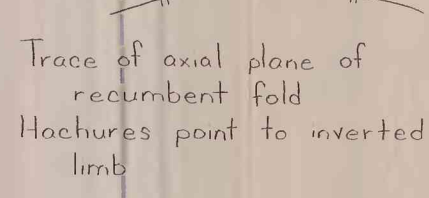 Trace of axial plane of
recumbent fold
Hachures point to inverted
limb